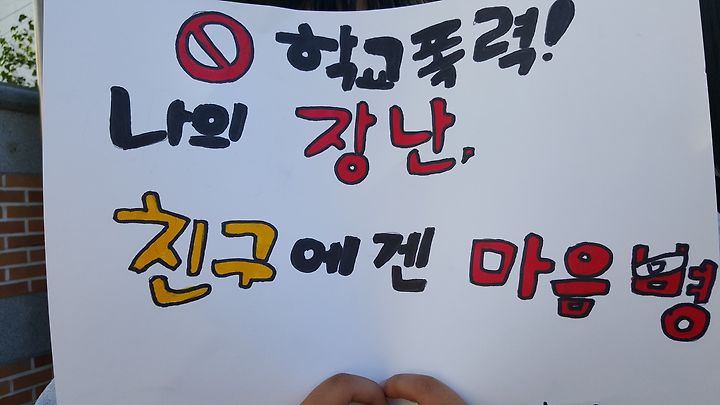 학교폭력!
나의 장난,
친구에겐 마음병